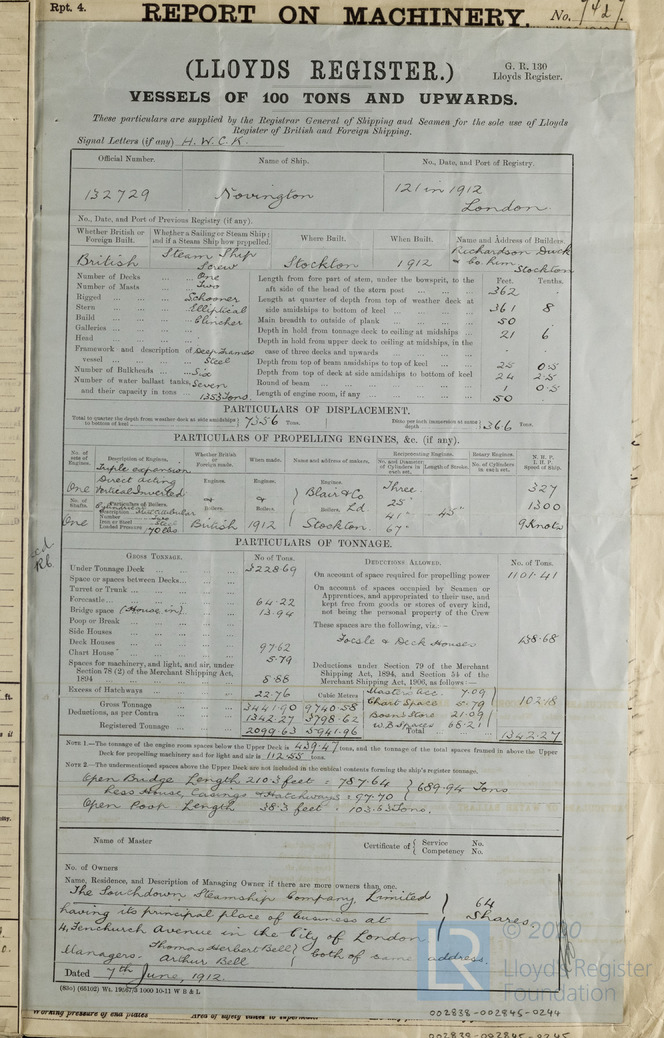 Rpt. 4.
REPORT ON MACHINERY. No. 7427.
(LLOYDS REGISTER.)
G. R. 130
Lloyds Register.
VESSELS OF 100 TONS AND UPWARDS.
These particulars are supplied by the Registrar General of Shipping and Seamen for the sole use of Lloyds
Register of British and Foreign Shipping.
Signal Letters (if any) H.W.C.K.
Official Number. Name of Ship. No., Date, and Port of Registry.
132729 Novington 121 in 1912
London
No., Date, and Port of Previous Registry (if any).
Whether British or Foreign Built. Whether a Sailing or Steam Ship; and if a Steam Ship how propelled. Where Built. When Built. Name and Address of Builders.
British Steam Ship Screw Stockton 1912 Richardson Duck & Co. Lim Stockton
Number of Decks ... One
Number of Masts ... Two
Rigged ... Schooner
Stern ... Elliptical
Build ... Clincher
Galleries ...
Head ...
Framework and description of vessel ... Deep Frames Steel
Number of Bulkheads ... Six
Number of water ballast tanks, and their capacity in tons Seven 1353 Tons.
Feet. Tenths.
Length from fore part of stem, under the bowsprit, to the aft side of the head of the stern post ... 362 .
Length at quarter of depth from top of weather deck at side amidships to bottom of keel ... 361 8
Main breadth to outside of plank ... 50 .
Depth in hold from tonnage deck to ceiling at midships ... 21 6
Depth in hold from upper deck to ceiling at midships, in the case of three decks and upwards . .
Depth from top of beam amidships to top of keel ... 25 0.5
Depth from top of deck at side amidships to bottom of keel 24 2.5
Round of beam ... 1 0.5
Length of engine room, if any ... 50 .
PARTICULARS OF DISPLACEMENT.
Total to quarter the depth from weather deck at side amidships to bottom of keel ... 7356 Tons. Ditto per inch immersion at same depth 36.6 Tons.
PARTICULARS OF PROPELLING ENGINES, &c. (if any).
No. of sets of Engines. Description of Engines. Whether British or Foreign made. When made. Name and address of makers. Reciprocating Engines. No. and Diameter of Cylinders in each set. Length of Stroke. Rotary Engines. No. of Cylinders in each set. N.H.P. I.H.P. Speed of Ship.
One Triple expansion Direct acting Vertical Inverted
Engines. Engines. Engines. Blair & Co Ld Three 25" 41" 67" 45" 327
1300
9 Knots
No. of Shafts. Particulars of Boilers. Description Number Iron or Steel Loaded Pressure
One Cylindrical Multitubular Two Steel Boilers. British Boilers. 1912 Boilers. Stockton
PARTICULARS OF TONNAGE.
GROSS TONNAGE. No of Tons.
Under Tonnage Deck ... 3228.69
Space or spaces between Decks ...
Turret or Trunk ...
Forecastle ... 64.22
Bridge space (House in) ... 13.94
Poop or Break ...
Side Houses ...
Deck Houses ... 97.62
Chart House ... 5.79
Spaces for machinery, and light, and air, under Section 78 (2) of the Merchant Shipping Act, 1894 ... 8.88
Excess of Hatchways ... 22.76
Cubic Metres
Gross Tonnage 3441.90 9740.58
Deductions, as per Contra ... 1342.27 3798.62
Registered Tonnage ... 2099.63 5941.96
DEDUCTIONS ALLOWED. No. of Tons.
On account of space required for propelling power 1101.41
On account of spaces occupied by Seamen or Apprentices, and appropriated to their use, and kept free from goods or stores of every kind, not being the personal property of the Crew
These spaces are the following, viz.:—
Focsle & Deck Houses 138.68
Deductions under Section 79 of the Merchant Shipping Act, 1894, and Section 54 of the Merchant Shipping Act, 1906, as follows:—
Masters acc. 7.09
Chart Space 5.79
Bosn's Store 21.09
W.B Spaces 68.21
102.18
Total 1342.27
NOTE 1.—The tonnage of the engine room spaces below the Upper Deck is 439.47 tons, and the tonnage of the total spaces framed in above the Upper
Deck for propelling machinery and for light and air is 112.55 tons.
NOTE 2.—The undermentioned spaces above the Upper Deck are not included in the cubical contents forming the ship's register tonnage.
Open Bridge Length 210.3 feet = 787.64
Less House, Casings & Hatchways = 97.70 } 689.94 Tons
Open Poop Length 38.3 feet = 103.53 Tons.
Name of Master Certificate of { Service No. Competency No.
No. of Owners
Name, Residence, and Description of Managing Owner if there are more owners than one.
The Southdown Steamship Company Limited
having its principal place of business at
4, Fenchurch Avenue in the City of London
64 Shares
Managers. Thomas Herbert Bell
Arthur Bell } both of same address.
Dated 7th June, 1912.
© 2020
Lloyd's Register
Foundation
LR
Working pressure of end plates
002838-002845-0244
002838-002845-0245